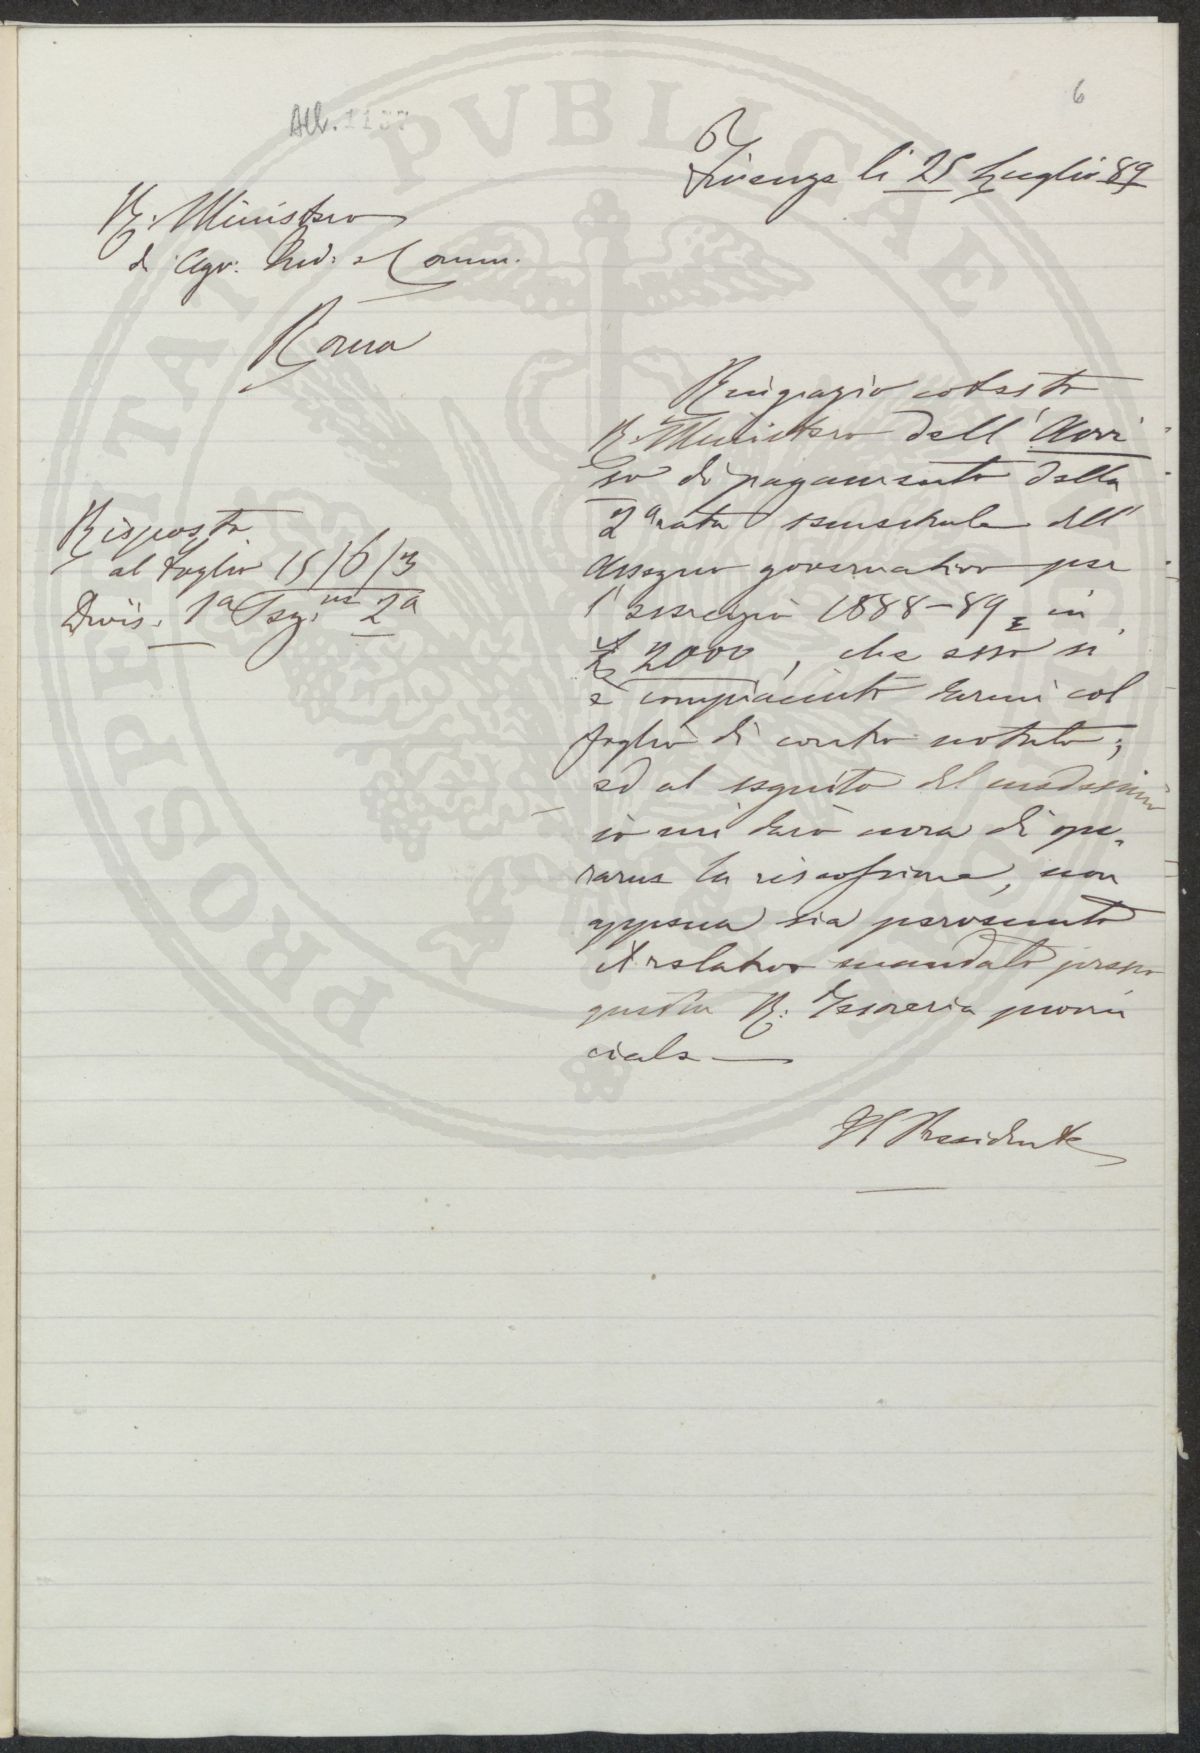 6
All. 1137
Firenze li 25 Luglio 89
R. Ministero
di Agr: Ind: e Comm.
Roma
Ringrazio cotesto
R. Ministero dell'Avvi
so di pagamento della
2ª rata semestrale dell'
Assegno governativo per
l'esercizio 1888-89 in
£ 2000, che esso si
è compiaciuto darmi col
foglio di contro notato;
ed al seguito del medesimo
io mi darò cura di ope-
rarne la riscossione, non
appena sia pervenuto
il relativo mandato presso
questa R: Tesoreria provin
ciale
Il Presidente
Risposta
al foglio 15/6/3
Divis. 1ª Sez.ne 2ª
PROSPERITATI PVBLICAE